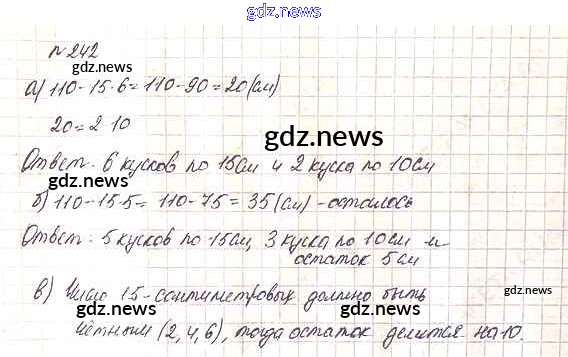 gdz.news
№ 242
gdz.news
а) 110-15·6=110-90=20(см)
20=2·10
gdz.news
Ответ: 6 кусков по 15см и 2 куска по 10см
gdz.news
б) 110-15·5= 110-75=35(см)-осталось
Ответ: 5 кусков по 15см, 3 куска по 10см и
остаток 5см
gdz.news
в) Число 15-сантиметровых должно быть
gdz.news
чётным (2,4,6), тогда остаток делится на 10.
gdz.news